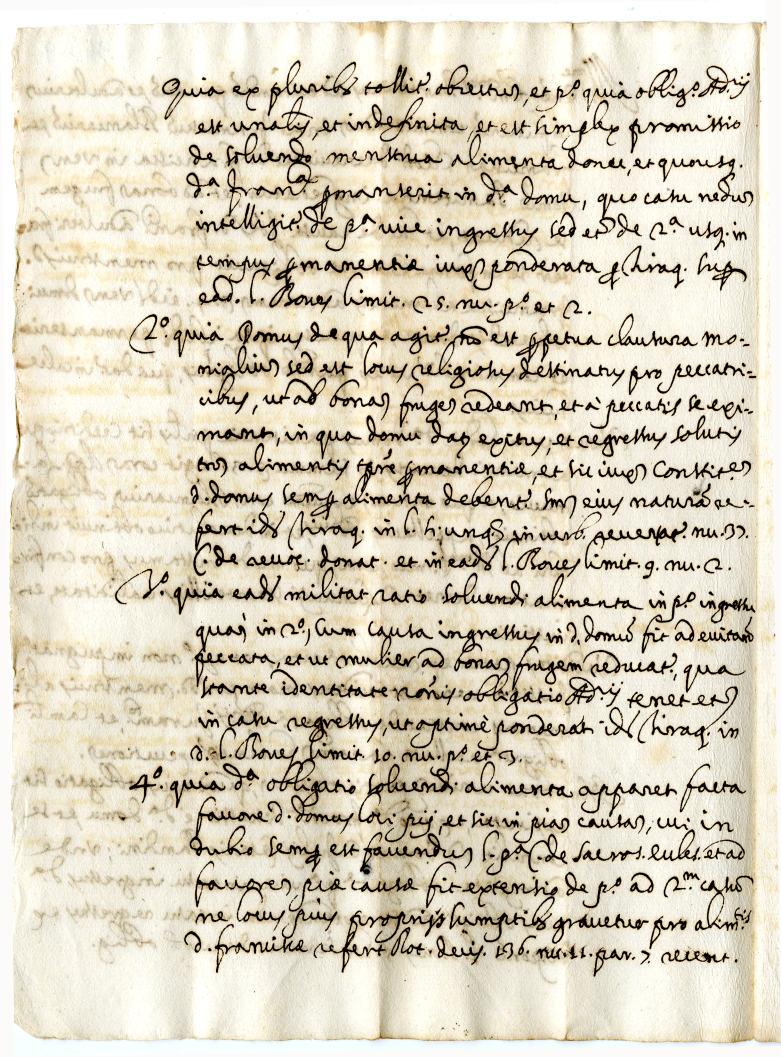 Quia ex pluribs tollit. obiectus, et p.º quia oblig.º Ad.ij
est unalis, et indefinita, et est simplex promissio
de solvendo menstrua alimenta donec, et quousq.
d.ª Fran.ª pmanserit in d.ª domu, quo casu nedus
intelligit. de p.ª vice ingressus sed et de 2.ª usq. in
tempus pmanentiæ iuxª ponderata p Tiraq. sup
ead. l. Boves limit. 25. nu. p.º et 2.
2.º quia Domus de qua agit. nõ est ppetua clausura mo-
nialium sed est locus religiosus destinatus pro peccatri-
cibus, ut ad bonas fruges redeant, et a peccatis se exi-
mant, in qua domu dat exitus, et regressus solutis
tn alimentis tpre pmanentiæ, et sic iuxª Constit.es
d. domus semp alimenta debent. sm eius naturã re-
fert ids Tiraq. in l. si unq. in verb. revertat. nu. 37.
C. de revoc. donat. et in eads l. Boves limit. 9. nu. 2.
3.º quia eads militat ratio solvendi alimenta in p.º ingressu
quas in 2.º, Cum causa ingressus in d. domu fit ad evitand
peccata, et ut mulier ad bonas frugem reducat., qua
stante identitate rõnis obligatio Ad.ij tenet et
in casu regressus, ut optimè ponderat ids Tiraq. in
d. l. Boves limit. 10. nu. p.º et 3.
4.º quia d.ª obligatio solvendi alimenta apparet facta
favore d. domus loci pij, et sic in pias causas, cui in
dubio semp est favendus l. p.ª C. de sacros. Eccles. et ad
favores piæ causæ fit extensio de p.º ad 2.m casu
ne locus pius proprijs sumptibs gravetur pro alim.tis
d. franciscæ refert Rot. decis. 136. nu. 11. par. 7. recent.